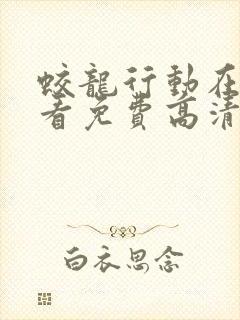 蛟龍行動在
看免費高清
白衣思念